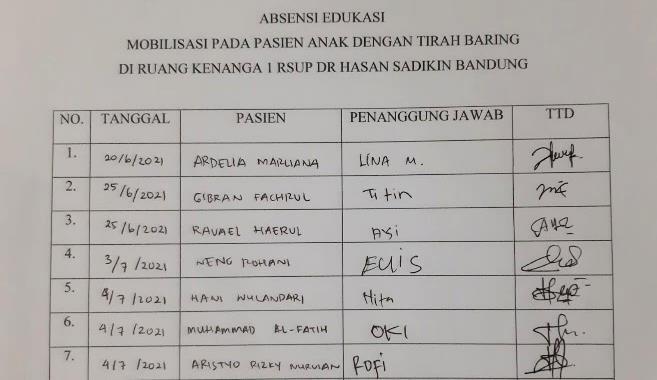 ABSENSI EDUKASI
MOBILISASI PADA PASIEN ANAK DENGAN TIRAH BARING
DI RUANG KENANGA 1 RSUP DR HASAN SADIKIN BANDUNG
NO. TANGGAL PASIEN PENANGGUNG JAWAB TTD
1. 20/6/2021 ARDELIA MARLIANA LINA M.
2. 25/6/2021 GIBRAN FACHRUL Titin
3. 25/6/2021 RAVAEL HAERUL
4. 3/7/2021 NENG ROHANI EUIS
5. 4/7/2021 HANI WULANDARI Mita
6. 4/7/2021 MUHAMMAD AL-FATIH OKI
7. 4/7/2021 ARISTYO RIZKY